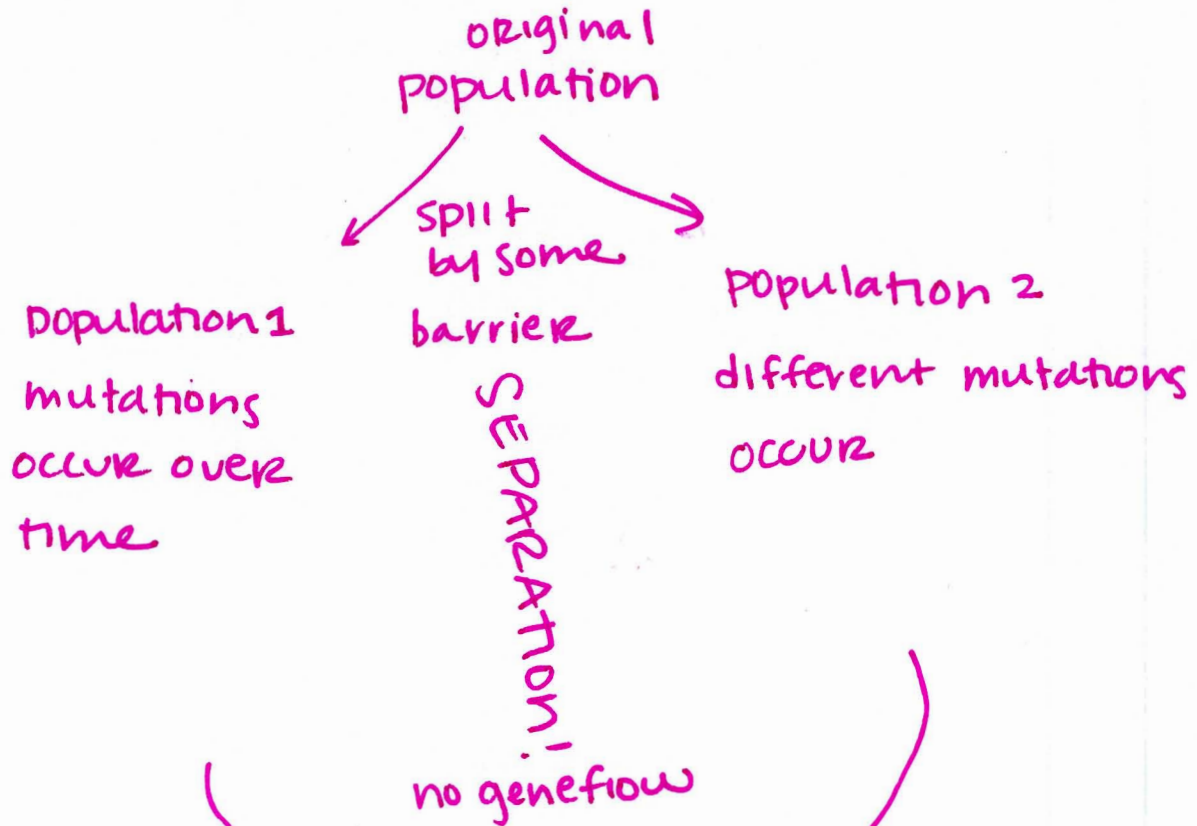 original
population
split
by some
barrier
population 1
mutations
occur over
time
population 2
different mutations
occur
SEPARATION!
no geneflow